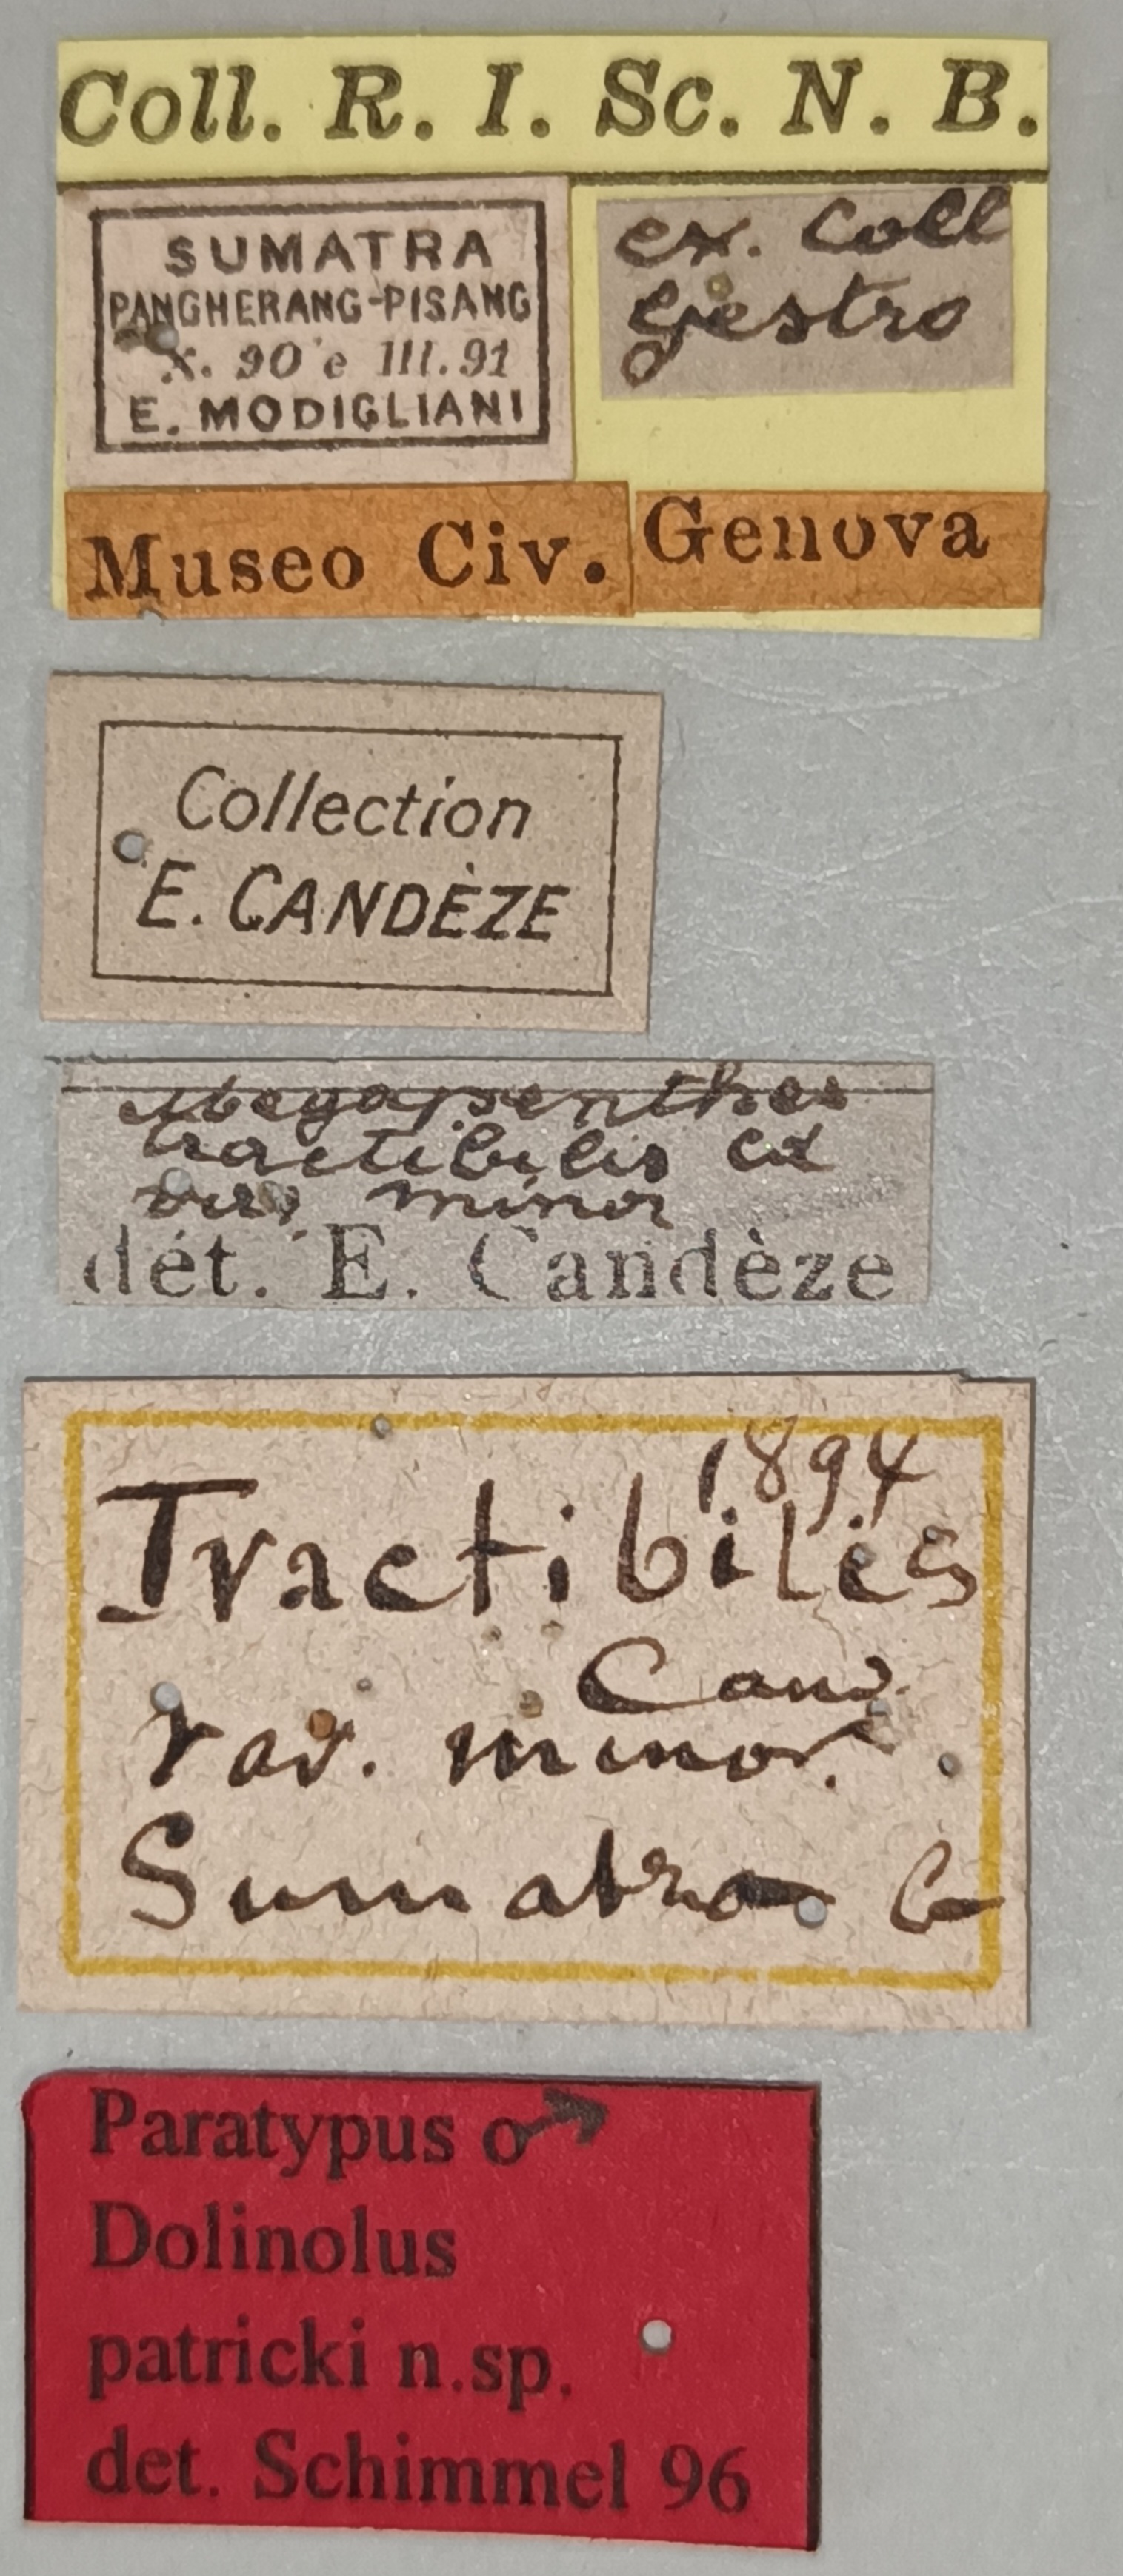 Coll. R. I. Sc. N. B.
SUMATRA
PANGHERANG-PISANG
X. 90 e III. 91
E. MODIGLIANI
ex. Coll
Gestro
Museo Civ. Genova
Collection
E. CANDÈZE
Megapenthes
tractibilis Cd
var. minor
dét. E. Candèze
1894
Tractibilis
Cand.
var. minor.
Sumatra
Paratypus ♂
Dolinolus
patricki n.sp.
det. Schimmel 96